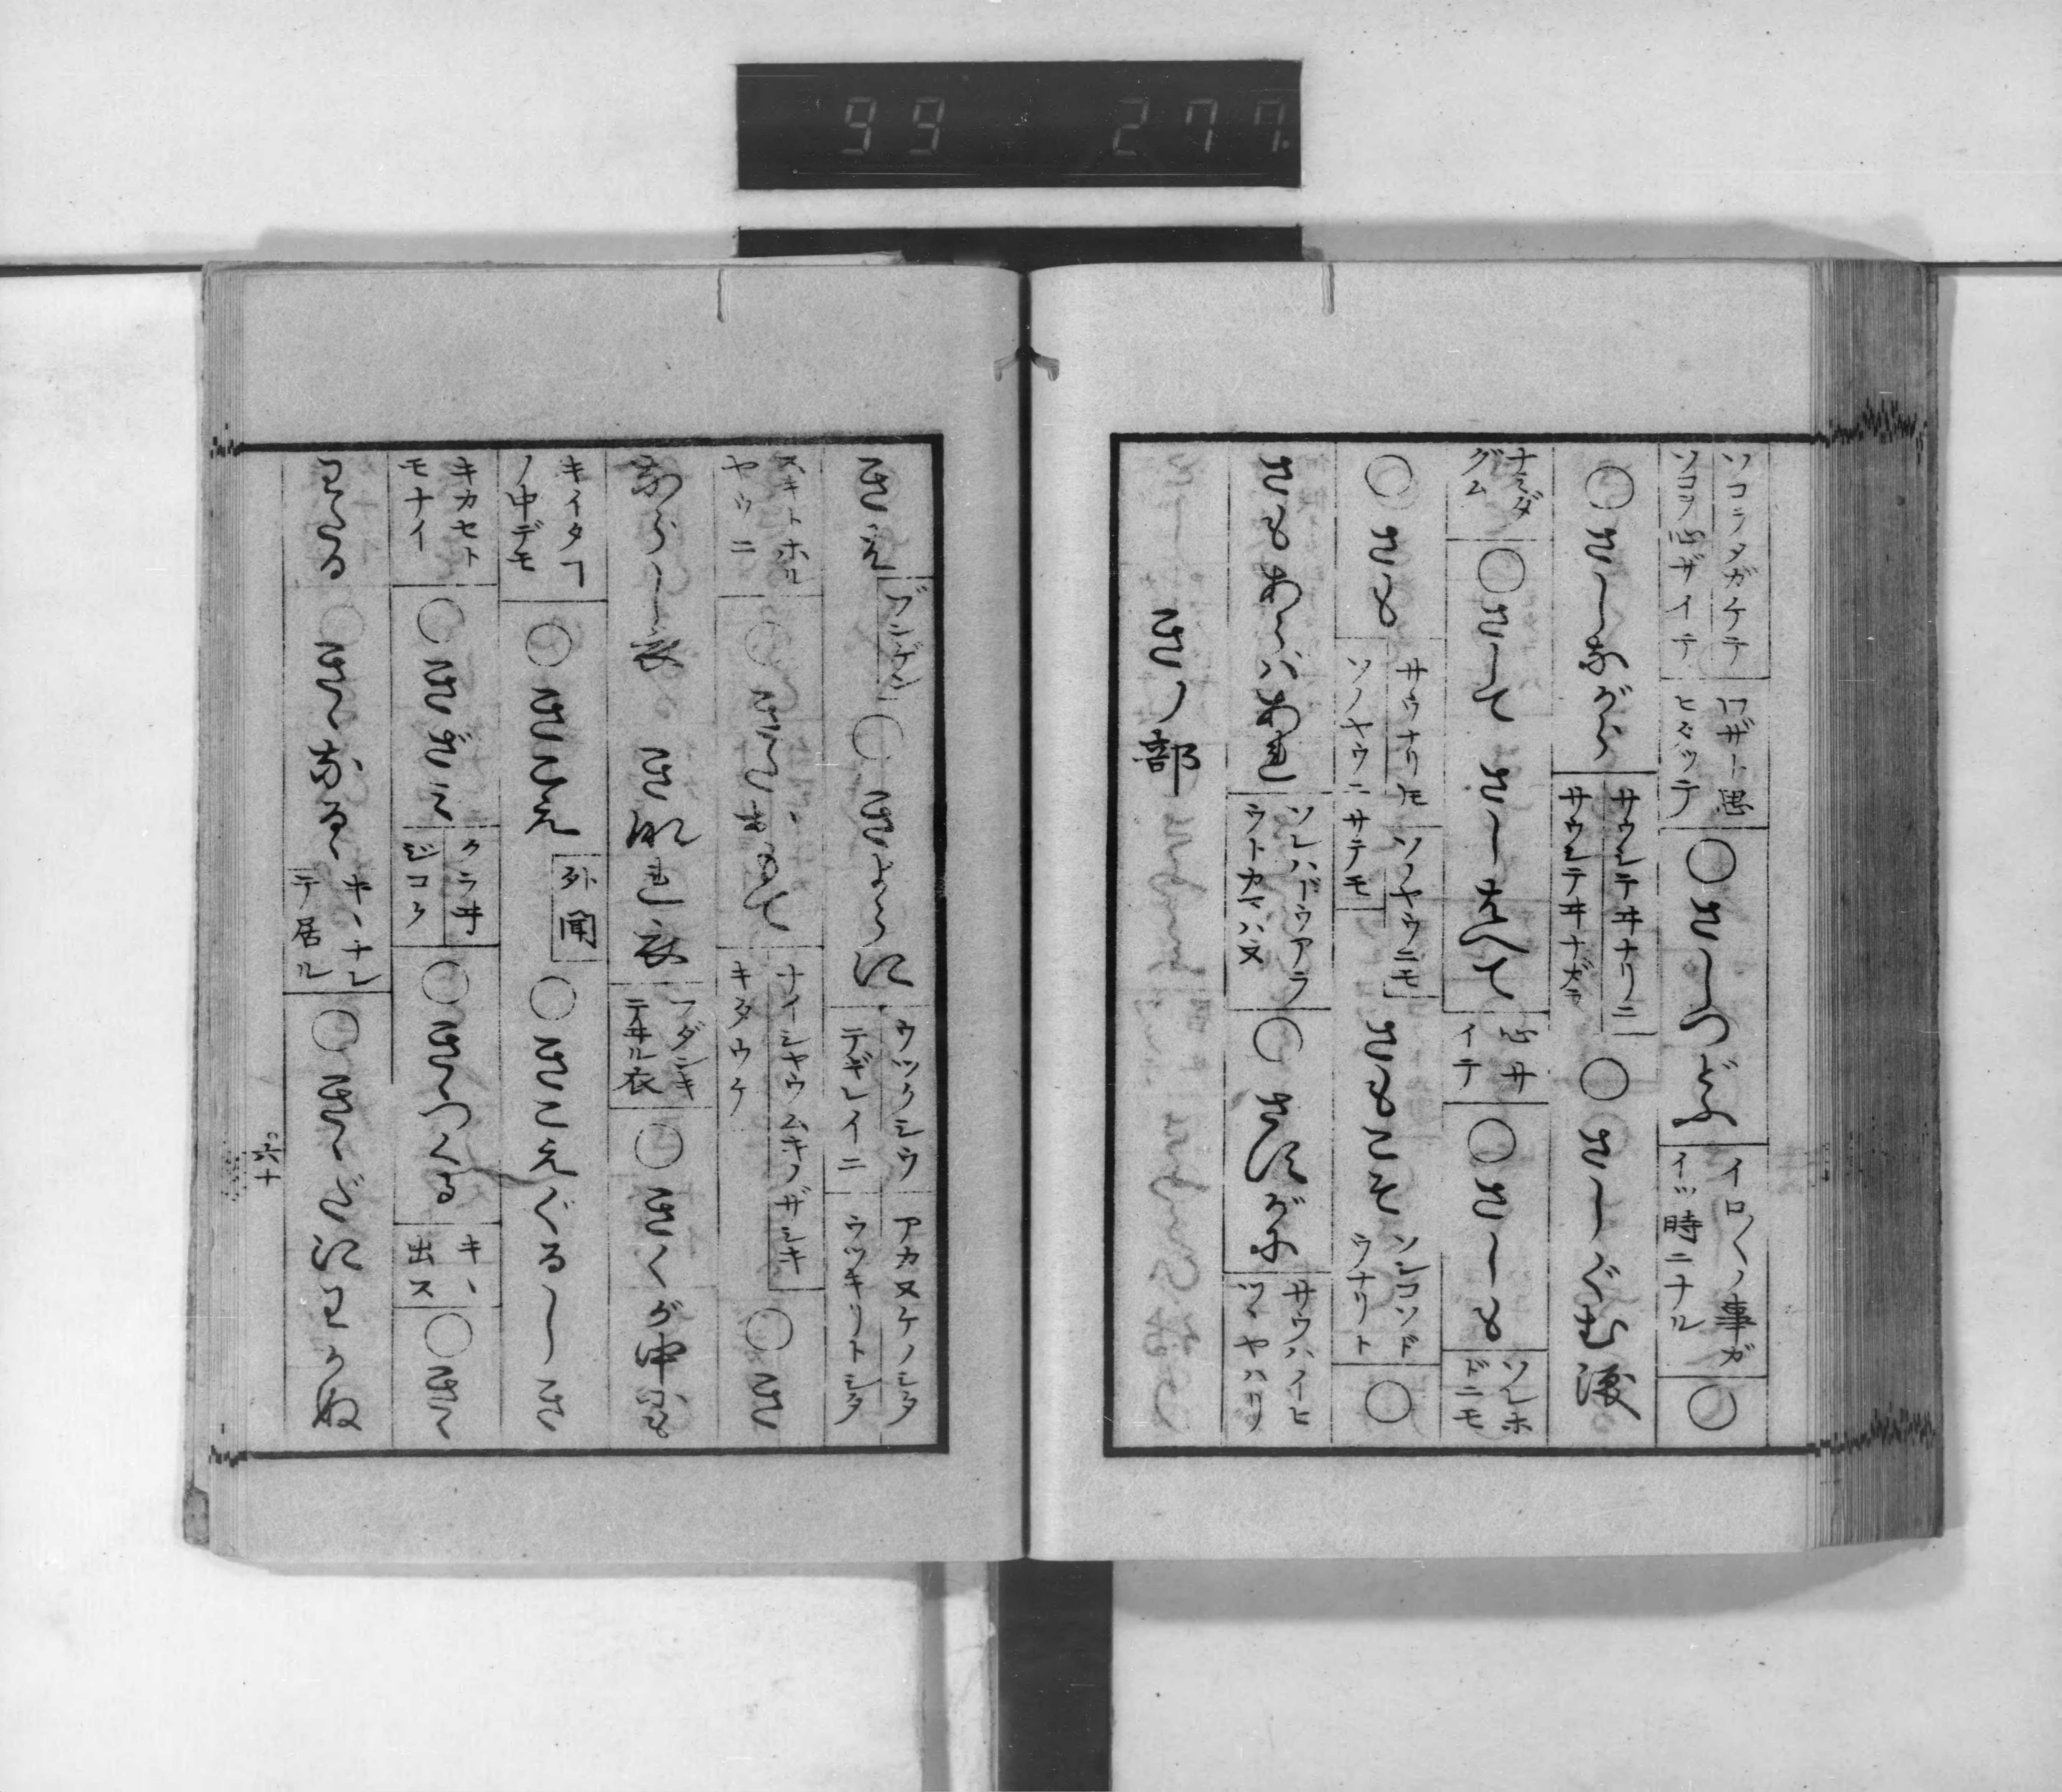 99 277
ソコヲメガケテ
ソコヲ心ザイテ
ワザト思
ヒタツテ
○さしつどふ
イロ〳〵ノ事ガ
イツ時ニナル
○
○さしながら
サウシテヰナリニ
サウシテヰナガラ
○さしぐむ涙
ナミダ
グム
○さして さしたて
心サ
イテ
○さしも
ソレホ
ドニモ
○さも
サウナリトモ
ソノヤウニモ
ソノヤウニ
サテモ
さもこそ
ソレコソド
ウナリト
○
さもあらばあれ
ソレハドウアラ
ウトカマハヌ
○さすがに
サウハイヒ
ツヽヤハリ
きノ部
きえ
○きよらに
ウツクシウ
テギレイニ
アカヌケノシタ
ウツキリトシタ
スキトホル
ヤウニ
ナイシヤウムキノザシキ
キタウケ
○き
ならし衣 きなれ衣
フダンキ
テヰル衣
○きくが中にも
キイタ
ノ中デモ
○きこえ
外聞
○きこえぐるし き
キカセト
モナイ
○きざみ
クラヰ
ジコク
○きりつくる
キヽ
出ス
○きゝ
わくる
○きゝなるゝ
キヽナレ
テ居ル
○きゝだにわかぬ
六十